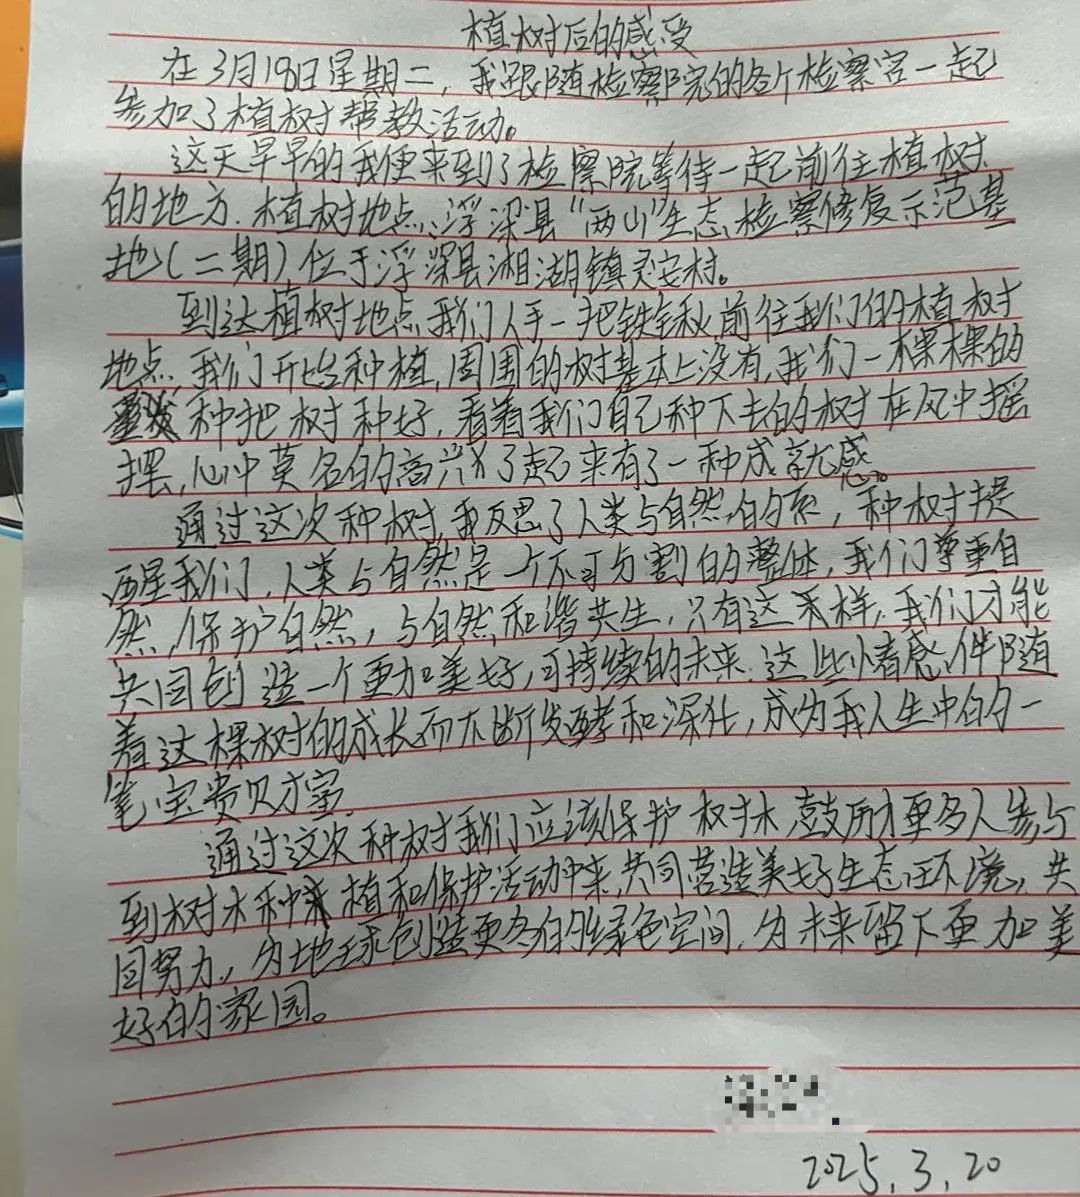 植树后的感受
在3月18日星期二，我跟随检察院的各个检察官一起
参加了植树帮教活动。
这天早早的我便来到了检察院等待一起前往植树
的地方.植树地点浮深县“两山”生态检察修复示范基
地(二期)位于浮深县湘湖镇灵安村。
到达植树地点我们人手一把铁锹前往我们的植树
地点,我们开始种植,周围的树基本上没有,我们一棵棵的
种把树种好,看着我们自己种下去的树在风中摇
摆,心中莫名的高兴了起来有了一种成就感。
通过这次种树,我反思了人类与自然的系，种树提
醒我们,人类与自然是一个不可分割的整体,我们尊重自
然,保护自然,与自然和谐共生,只有这样,我们才能
共同创造一个更加美好,可持续的未来.这些情感,伴随
着这棵树的成长而不断发酵和深化,成为我人生中的一
笔宝贵财富
通过这次种树我们应该保护树木,鼓励更多人参与
到树木种植和保护活动中来,共同营造美好生态环境,共
同努力,为地球创造更多的绿色空间,为未来留下更加美
好的家园。
2025.3.20